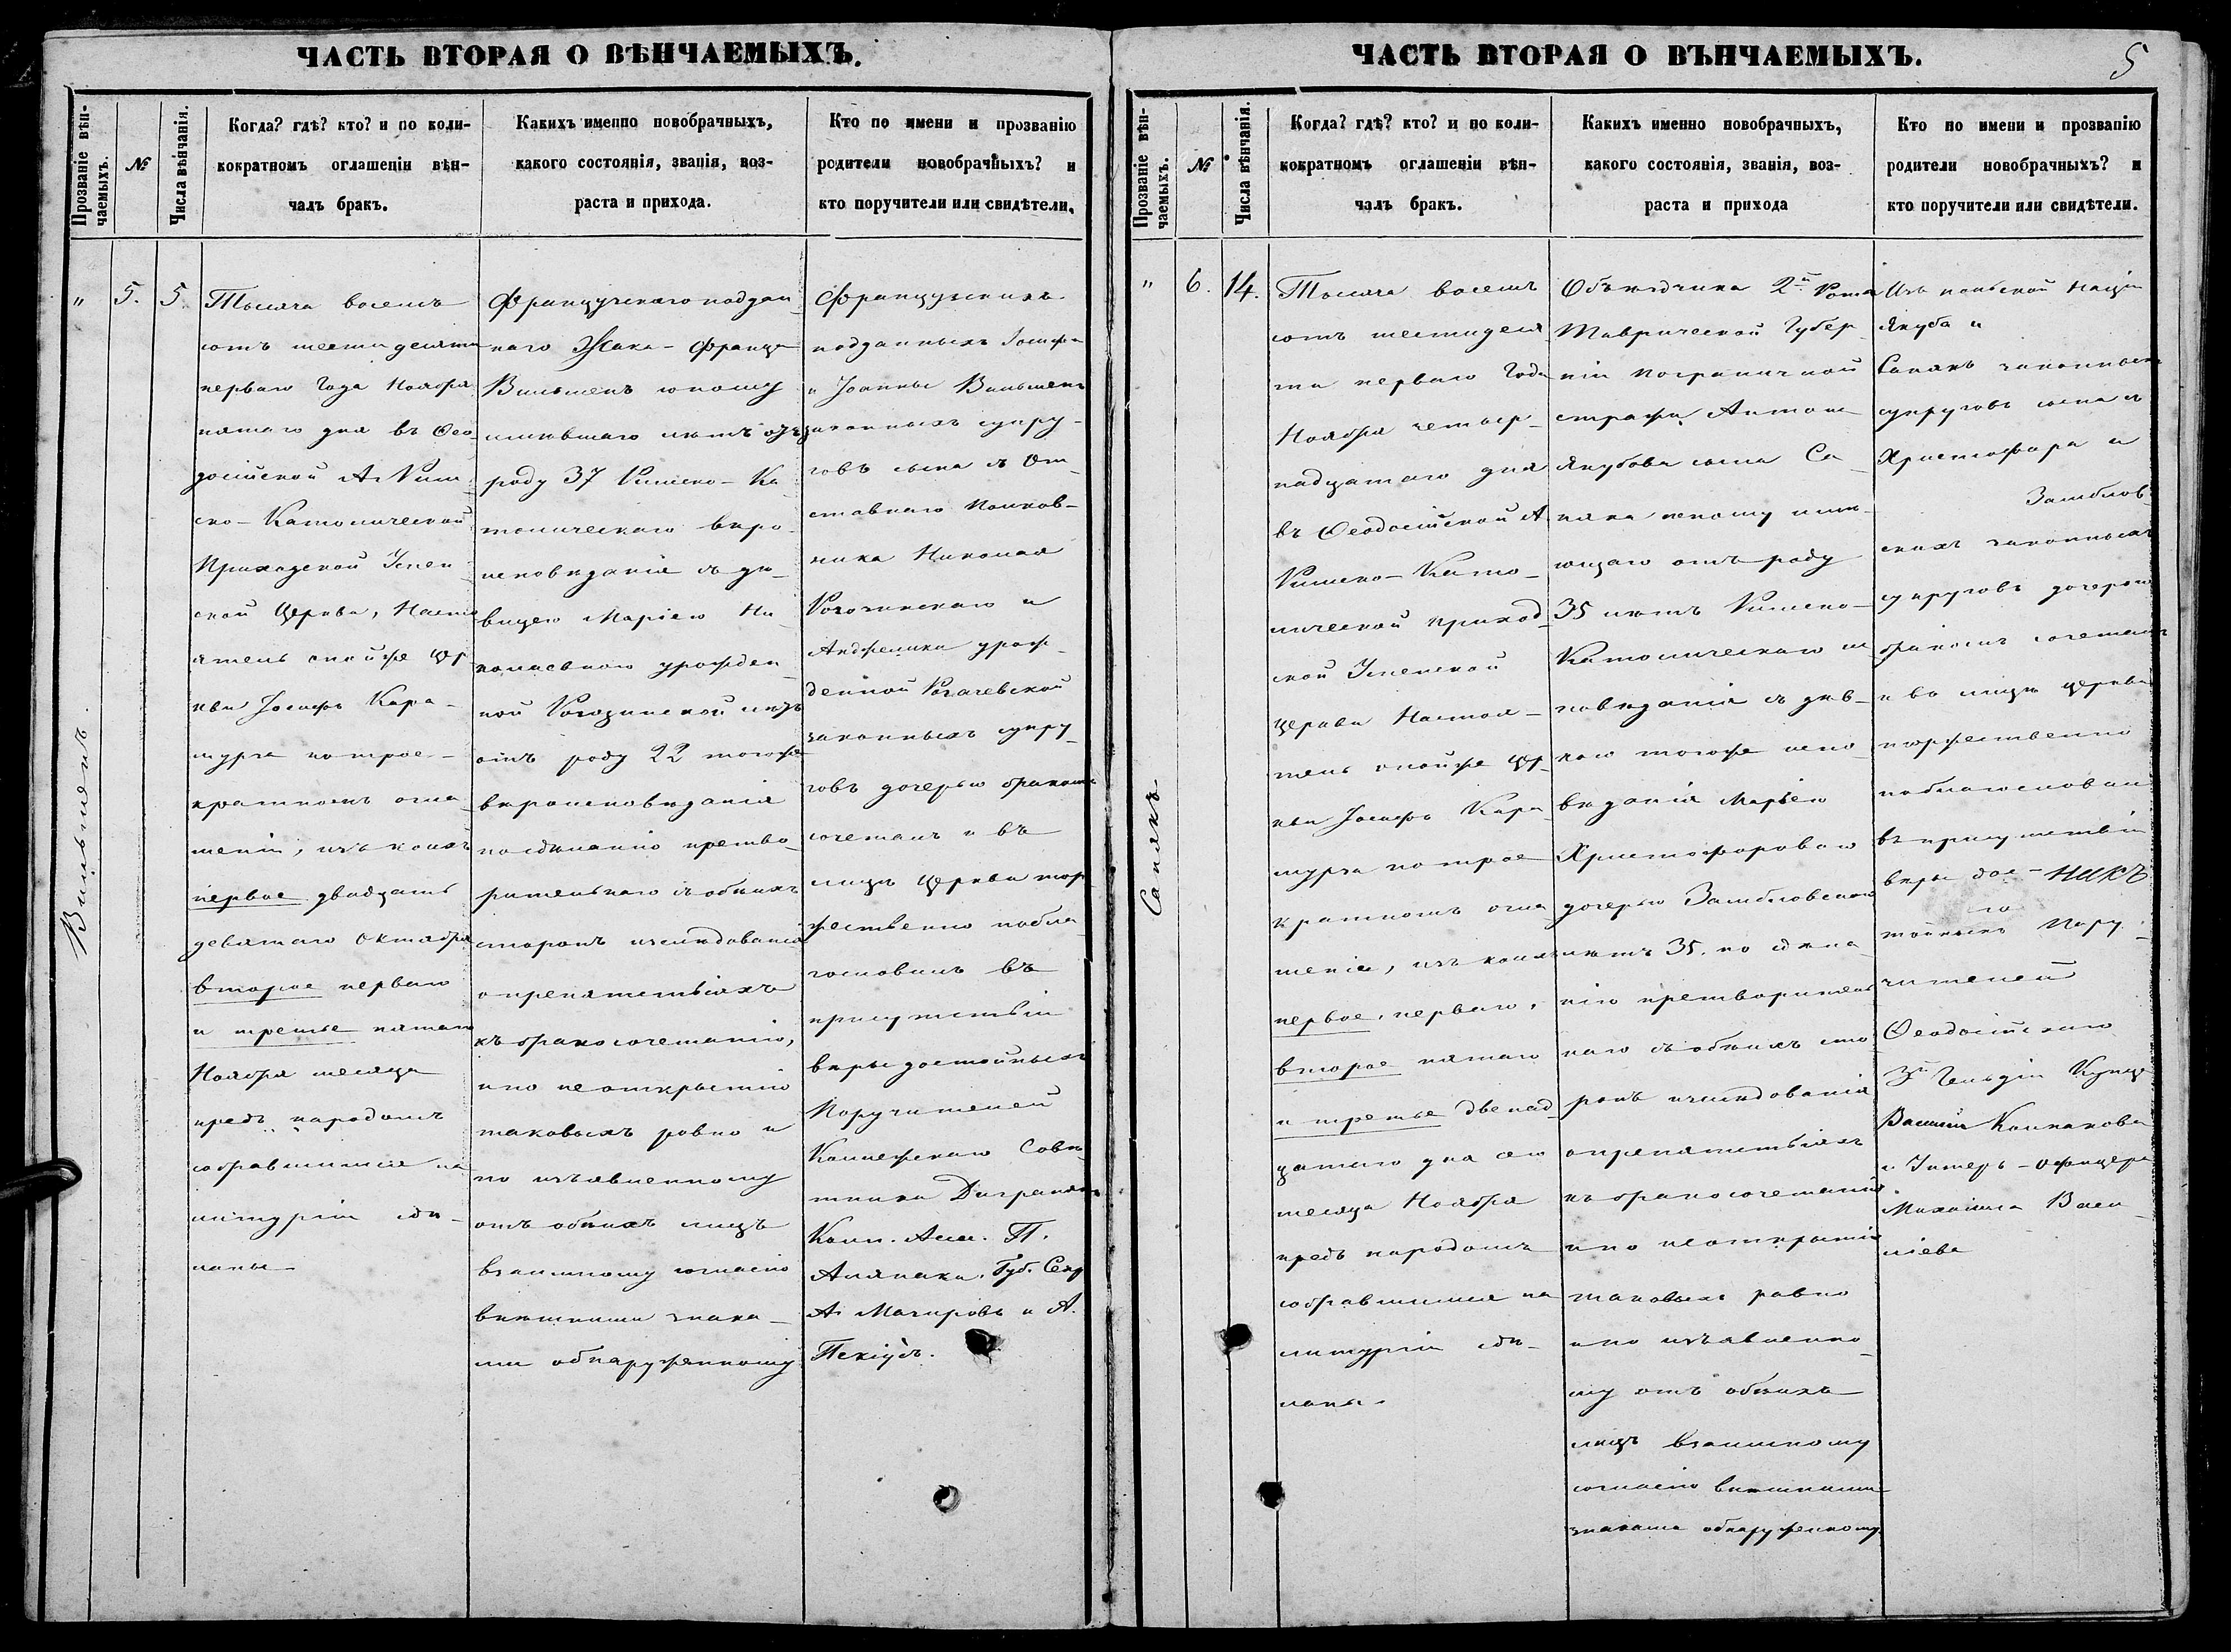 ЧАСТЬ ВТОРАЯ О ВѢНЧАЕМЫХЪ.
Прозваніе вѣн-
чаемыхъ.
№
Числа вѣнчанія.
Когда? гдѣ? кто? и по коли-
кократномъ оглашеніи вѣн-
чалъ бракъ.
Какихъ именно новобрачныхъ,
какого состоянія, званія, воз-
раста и прихода.
Кто по имени и прозванію
родители новобрачныхъ? и
кто поручители или свидѣтели.
Вильменъ.
"
5.
5
Тысяча восемь
сотъ шестидесять
перваго Года Ноября
пятаго дня въ Ѳео
досійской А. Рим
ско-Католической
Приходской Успен
ской Церкви, Насто
ятель оной же Цер
кви Іосифъ Кара-
мурза по трое-
кратномъ огла
шеніи, изъ коихъ
первое двадцать
девятаго Октября
второе перваго
и третье пятаго
Ноября месяца
предъ народомъ
собравшимся на
литургіи сдѣ-
ланы
Французскаго поддан
наго Жака-Франца
Вильменъ юношу
имѣвшаго лѣтъ отъ
роду 37 Римско-Ка
толическаго вѣро
исповѣданія съ дѣ
вицею Маріею Ни
колаевною урожден
ной лѣтъ
отъ роду 22 тогоже
вѣроисповѣданія
по сдѣланію претво
рительнаго съ обѣихъ
сторонъ изслѣдованія
о препятствіяхъ
къ бракосочетанію,
и по не открытію
таковыхъ ровно и
по изъявленному
отъ обѣихъ лицъ
взаимному согласію
внѣшними знака-
ми обнаруженному
Французскихъ
подданныхъ Іосифа
и Іоанны Вильменъ
законныхъ супру-
говъ сына съ От
ставнаго Полков-
ника Николая
и
Анджелики урож
денной Рогачевской
законныхъ супру
говъ дочерью бракомъ
сочеталъ и въ
лицѣ Церкви тор
жественно побла
гословилъ въ
присутствіи
вѣры достойныхъ
Поручителей
Коллежскаго Совѣ
тника
Колл. Асс. П.
Губ. Секр
А. и А.
ЧАСТЬ ВТОРАЯ О ВѢНЧАЕМЫХЪ.
5
Прозваніе вѣн-
чаемыхъ.
№
Числа вѣнчанія.
Когда? гдѣ? кто? и по коли-
кократномъ оглашеніи вѣн-
чалъ бракъ.
Какихъ именно новобрачныхъ,
какого состоянія, званія, воз-
раста и прихода
Кто по имени и прозванію
родители новобрачныхъ? и
кто поручители или свидѣтели.
Сапякъ
"
6.
14.
Тысяча восемь
сотъ шестидеся
та перваго Года
Ноября четыр-
надцатаго дня
въ Ѳеодосійской А
Римско-Като-
лической приход
ской Успенской
Церкви Настоя-
тель оной же Цер
кви Іосифъ Кара
мурза по трое
кратномъ огла
шеніи, изъ коихъ
первое, перваго,
второе пятаго
и третье двенад
цатаго дня сего
месяца Ноября
предъ народомъ
собравшимся на
литургіи сдѣ-
ланы.
Объѣздчика 2й Роты
Таврической Губер
ніи пограничной
стражи Антона
Якубова сына Са
пяка юношу имѣ-
ющаго отъ роду
35 лѣтъ Римско-
Католическаго ис
повѣданія съ дѣв-
кою тогоже испо
вѣданія Марьею
Христофоровою
дочерью Замбловскою
лѣтъ 35. по сдѣла
нію претворитель
наго съ обѣихъ сто
ронъ изслѣдованія
о препятствіяхъ
къ бракосочетанію
и по не открытію
таковыхъ равно
и по изъявленно
му отъ обѣихъ
лицъ взаимному
согласію внѣшними
знаками обнаруженному
Изъ польской Націи
Якуба и
Сапякъ законныхъ
супруговъ сына съ
Христофора и
Замблов
скихъ законныхъ
супруговъ дочерью
бракомъ сочеталъ
и въ лицѣ церкви
торжественно
поблагословилъ
въ присутствіи
вѣры дос-никъ
тойныхъ Пору
чителей
Ѳеодосійскаго
3й Гильдіи Купца
Василія Колпакова
и Унтеръ-офицера
Михаила Васи
ліева